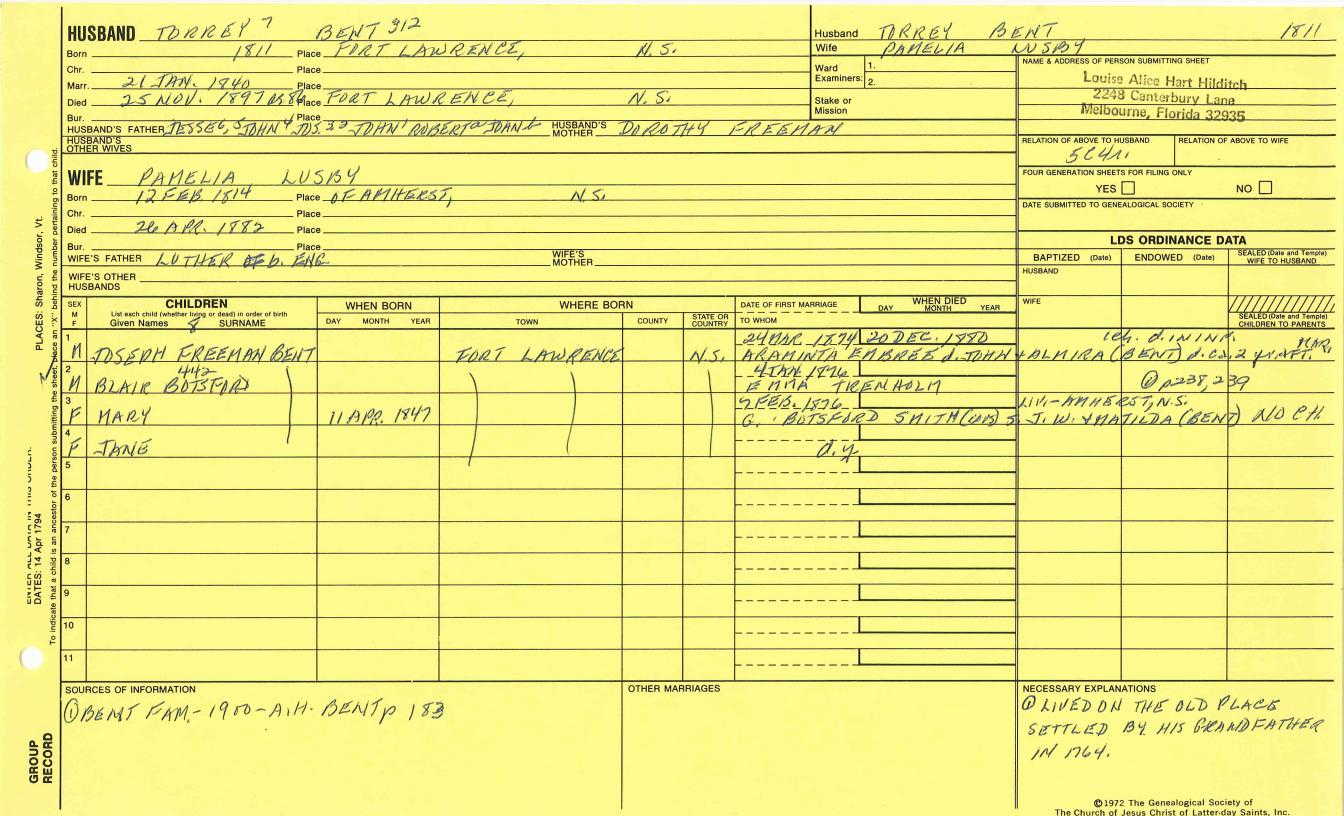 HUSBAND TORREY 7 BENT 312
Born 1811 Place FORT LAWRENCE, N.S.
Chr. Place
Marr. 21 JAN. 1840 Place
Died 25 NOV. 1897 Place FORT LAWRENCE, N.S.
Bur. Place
HUSBAND'S FATHER JESSE 6, 5 JOHN 4 JOS. JOHN 1 ROBERT HUSBAND'S MOTHER DOROTHY FREEMAN
HUSBAND'S OTHER WIVES
WIFE PAMELIA LUSBY
Born 12 FEB 1814 Place OF AMHERST, N.S.
Chr. Place
Died 26 APR. 1882 Place
Bur. Place
WIFE'S FATHER LUTHER b. ENG WIFE'S MOTHER
WIFE'S OTHER HUSBANDS
Husband TORREY BENT 1811
Wife PAMELIA LUSBY
Ward Examiners: 1.
2.
Stake or Mission
NAME & ADDRESS OF PERSON SUBMITTING SHEET
Louise Alice Hart Hilditch
2248 Canterbury Lane
Melbourne, Florida 32935
RELATION OF ABOVE TO HUSBAND RELATION OF ABOVE TO WIFE
5C4r.
FOUR GENERATION SHEETS FOR FILING ONLY
YES NO
DATE SUBMITTED TO GENEALOGICAL SOCIETY
LDS ORDINANCE DATA
BAPTIZED (Date) ENDOWED (Date) SEALED (Date and Temple) WIFE TO HUSBAND
HUSBAND
WIFE
SEALED (Date and Temple) CHILDREN TO PARENTS
SEX M F
CHILDREN
List each child (whether living or dead) in order of birth
Given Names 8 SURNAME
WHEN BORN
DAY MONTH YEAR
WHERE BORN
TOWN COUNTY STATE OR COUNTRY
DATE OF FIRST MARRIAGE
TO WHOM
WHEN DIED
DAY MONTH YEAR
1 24 MAR 1874 20 DEC. 1880 1ch. d. IN INF.
M JOSEPH FREEMAN BENT FORT LAWRENCE N.S. ARAMINTA EMBREE d. JOHN + ALMIRA (BENT) d. ca. 2 yr AFT. MAR.
2 442 4 JAN 1876
M BLAIR BOTSFORD EMMA TRENHOLM ① p238, 239
3 9 FEB. 1876 LIV.-AMHERST, N.S.
F MARY 11 APR. 1847 G. BOTSFORD SMITH s. J. W. + MATILDA (BENT) NO CH.
4
F JANE d.y.
5
6
7
8
9
10
11
SOURCES OF INFORMATION
① BENT FAM.-1900-A.H. BENT p 183
OTHER MARRIAGES
NECESSARY EXPLANATIONS
① LIVED ON THE OLD PLACE
SETTLED BY HIS GRANDFATHER
IN 1764.
©1972 The Genealogical Society of
The Church of Jesus Christ of Latter-day Saints, Inc.
GROUP RECORD
DATES: 14 Apr 1794
PLACES: Sharon, Windsor, Vt.
To indicate that a child is an ancestor of the person submitting the sheet, place an "X" behind the number pertaining to that child.